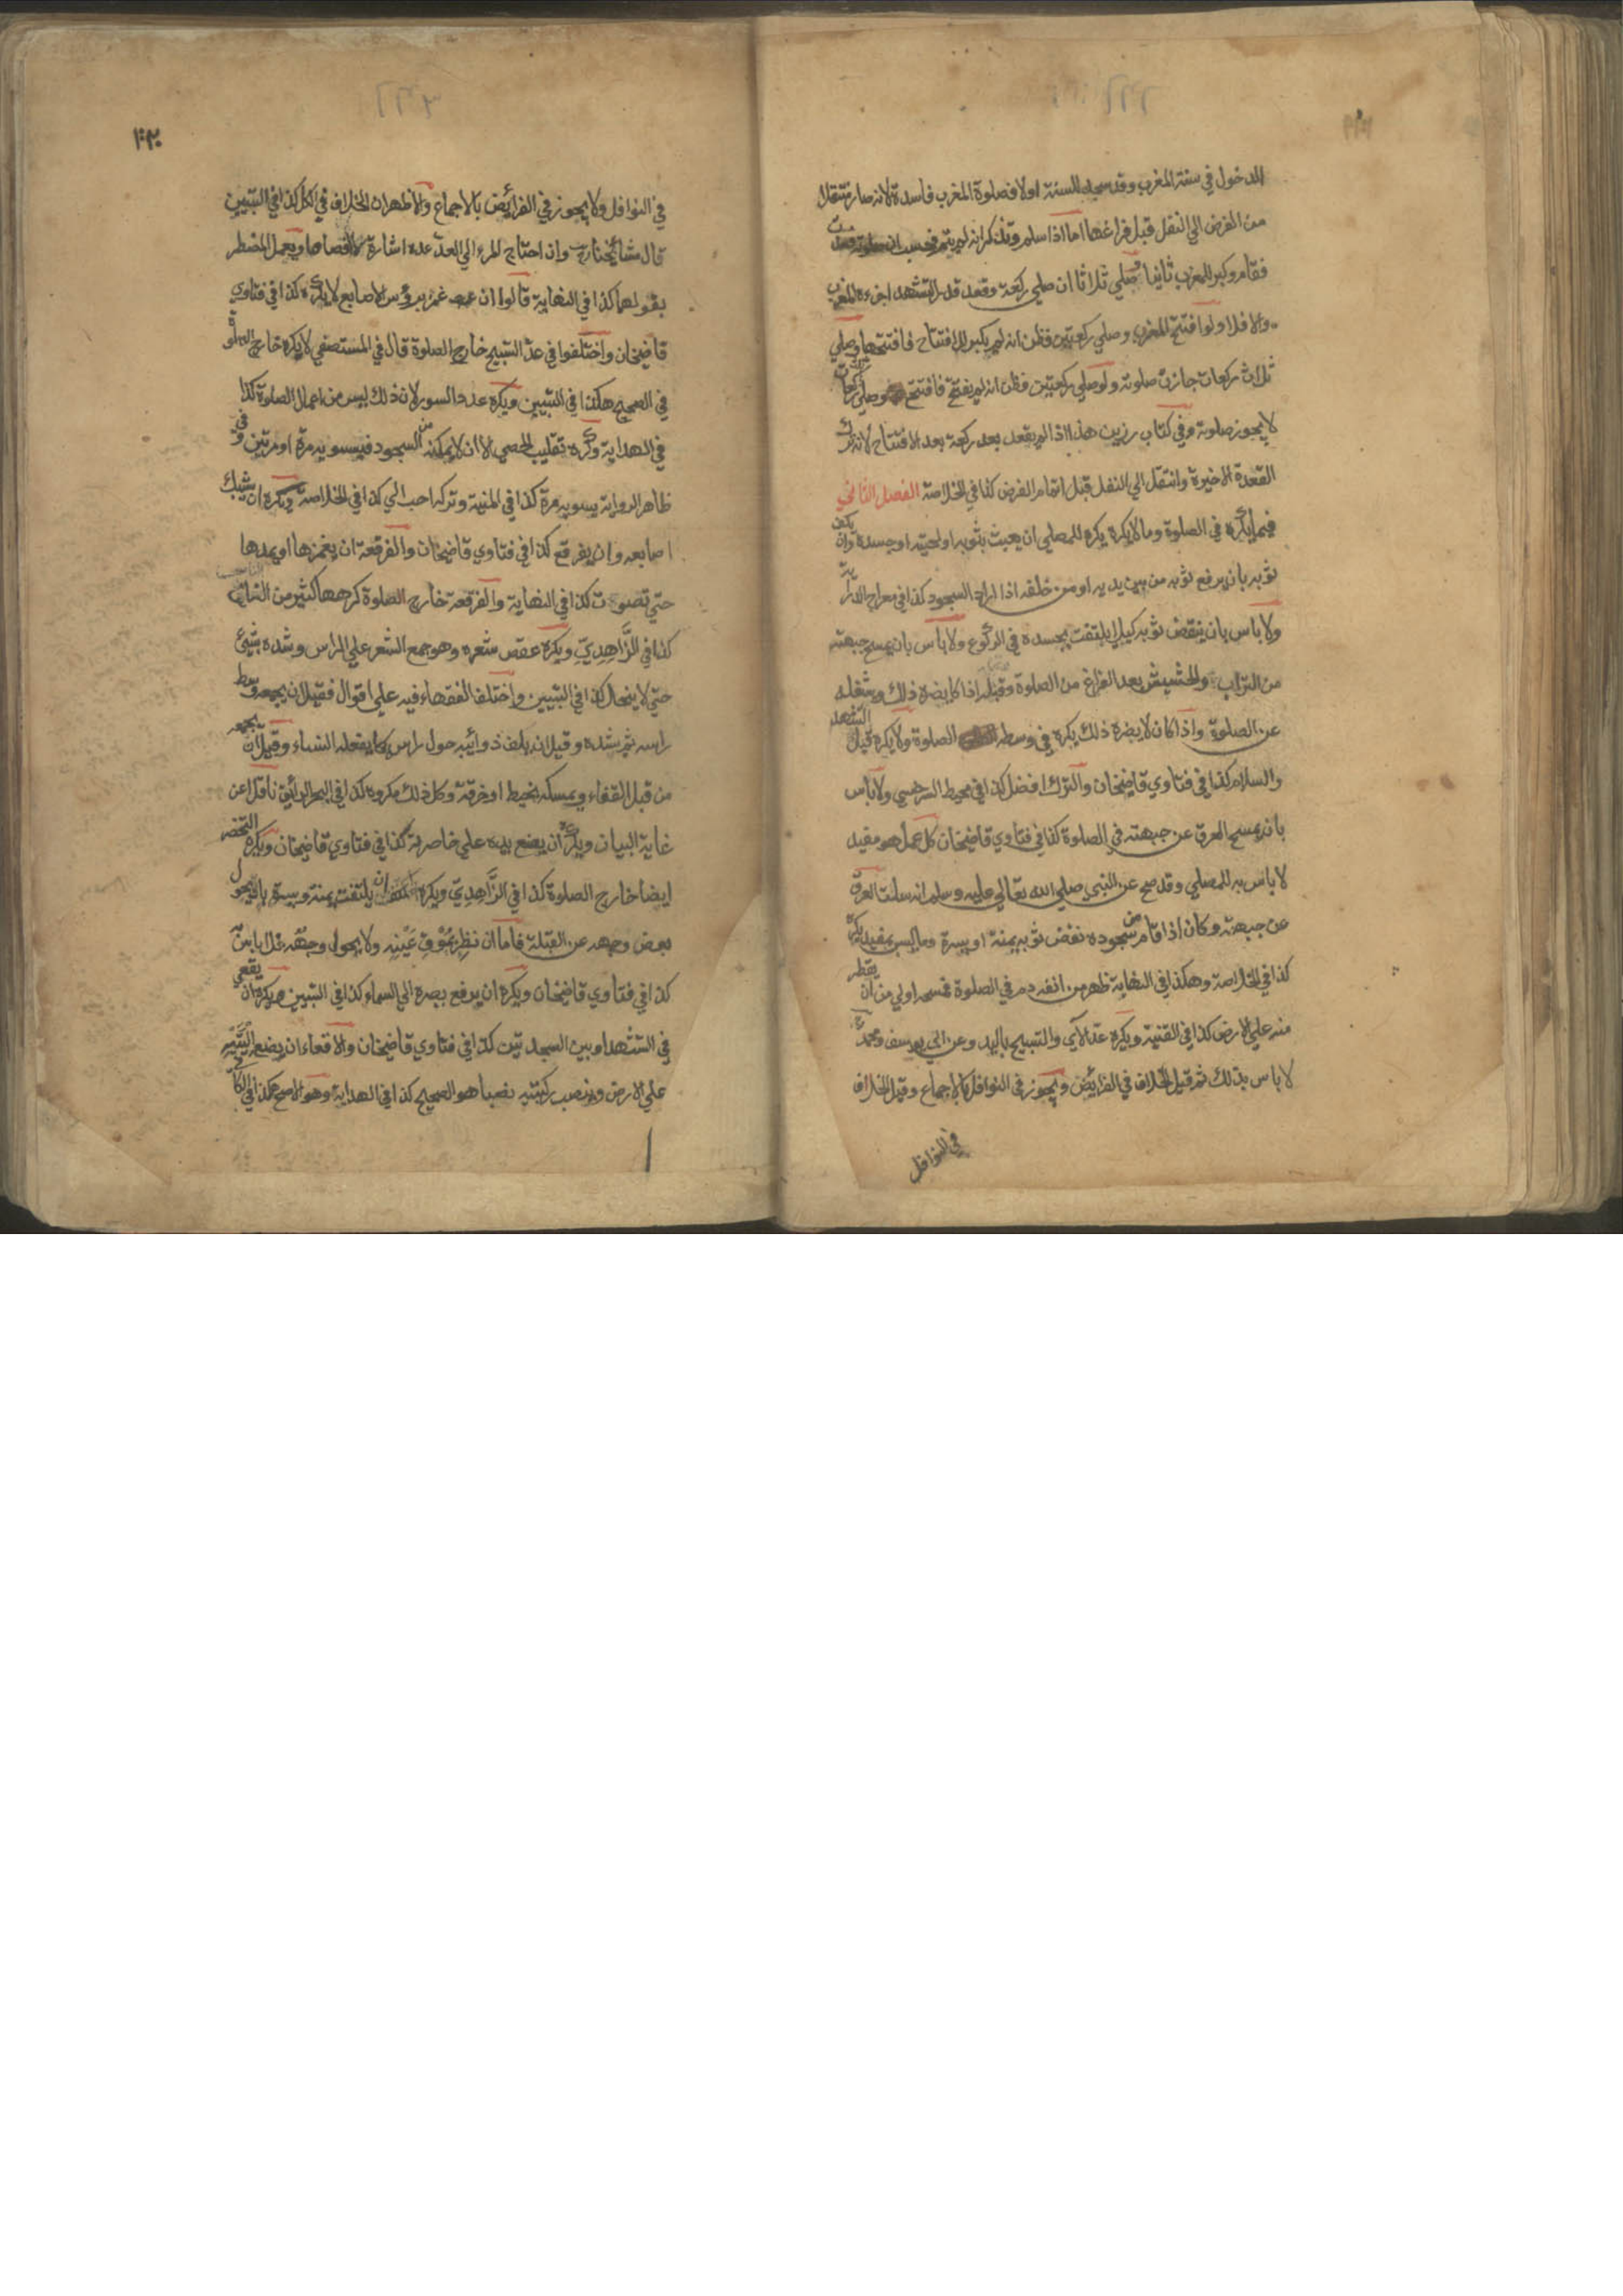 الدخول في سنة المغرب وقد سجد للسنة اولا فصلوة المغرب فاسدة لانه صار منتقلا
من الفرض الي النفل قبل فراغها اما اذا سلم وتذكر انه لم يتم فحسب ان صلوته فسدت
فقام وكبر للمغرب ثانيا وصلي ثلاثا ان صلي ركعة وقعد قدر التشهد اجزءه المغرب
والا فلا ولو افتتح المغرب وصلي ركعتين فظن انه لم يكبر للافتتاح فافتتحها وصلي
ثلاث ركعات جازت صلوته ولو صلي ركعتين فظن انه لم يفتتح فافتتح وصلي ركعات
لا يجوز صلوته وفي كتاب رزين هذا اذا لم يقعد بعد ركعة بعد الافتتاح لانه ترك
القعدة الاخيرة وانتقل الي النفل قبل اتمام الفرض كذا في الخلاصة الفصل الثاني
فيما يكره في الصلوة وما لا يكره يكره للمصلي ان يعبث بثوبه او لحيته او جسده وان يكف
ثوبه بان يرفع ثوبه من بين يديه او من خلفه اذا اراد السجود كذا في معراج الدراية
ولا باس بان ينفض ثوبه كيلا يلتفت بجسده في الركوع ولا باس بان يمسح جبهته
من التراب والحشيش بعد الفراغ من الصلوة وقبله اذا كا يضره ذلك وشغله
عن الصلوة واذا كان لا يضره ذلك يكره في وسط الصلوة ولا يكره قبل التشهد
والسلام كذا في فتاوي قاضيخان والترك افضل كذا في محيط السرخسي ولا باس
بان يمسح العرق عن جبهته في الصلوة كذا في فتاوي قاضيخان كل عمل هو مفيد
لا باس به للمصلي وقد صح عن النبي صلي الله تعالي عليه وسلم انه سلت العرق
عن جبهته وكان اذا قام من سجوده نفض ثوبه يمنة او يسرة وما ليس بمفيد يكره
كذا في الخلاصة وهكذا في النهاية ظهر من انفه دم في الصلوة فمسحه اولي من ان يقطر
منه علي الارض كذا في القنية ويكره عد الآي والتسبيح باليد وعن ابي يوسف ومحمد
لا باس بذلك ثم قيل الخلاف في الفرائض ويجوز في النوافل بالاجماع وقيل الخلاف
في النوافل
١٠٣
في النوافل ولا يجوز في الفرائض بالاجماع والاظهر ان الخلاف في الكل كذا في التبيين
قال مشائخنا وان احتاج المرء الي العد عده اشارة لا افصاحا ويعمل المضطر
بقولهما كذا في النهاية قالوا ان غمز برؤس الاصابع لا يكره كذا في فتاوي
قاضيخان واختلفوا في عد التسبيح خارج الصلوة قال في المستصفي لا يكره خارج الصلوة
في الصحيح هكذا في التبيين ويكره عد السور لان ذلك ليس من اعمال الصلوة كذا
في الهداية وكره تقليب الحصي الا ان لا يمكنه من السجود فيسويه مرة او مرتين وفي
ظاهر الرواية يسويه مرة كذا في المنية وتركه احب الي كذا في الخلاصة ويكره ان يشبك
اصابعه وان يفرقع كذا في فتاوي قاضيخان والفرقعة ان يغمزها او يمدها
حتي تصوت كذا في النهاية والفرقعة خارج الصلوة كرهها كثير من الناس
كذا في الزَّاهِدِيّ ويكره عقص شعره وهو جمع الشعر علي الراس وشده بشيئ
حتي لا ينحل كذا في التبيين واختلف الفقهاء فيه علي اقوال فقيل ان يجمعه وسط
راسه ثم يشده وقيل ان يلف ذوائبه حول راس كما يفعله النساء وقيل ان يجمعه
من قبل القفاء ويمسكه بخيط او خرقة وكل ذلك مكروه كذا في البحر الرائق ناقلا عن
غاية البيان ويكره ان يضع يده علي خاصرته كذا في فتاوي قاضيخان ويكره التخصر
ايضا خارج الصلوة كذا في الزَّاهِدِيّ ويكره ان يلتفت يمنة ويسرة بان يحول
بعض وجهه عن القبلة فاما ان نظر بمُوْقِ عَيْنِه ولا يحول وجهه فلا باس به
كذا في فتاوي قاضيخان ويكره ان يرفع بصره الي السماء كذا في التبيين ويكره ان يقعي
في التشهد او بين السجدتين كذا في فتاوي قاضيخان والاقعاء ان يضع اَلْيَتَيْهِ
علي الارض وينصب ركبتيه نصبا هو الصحيح كذا في الهداية وهو الاصح هكذا في الكافي